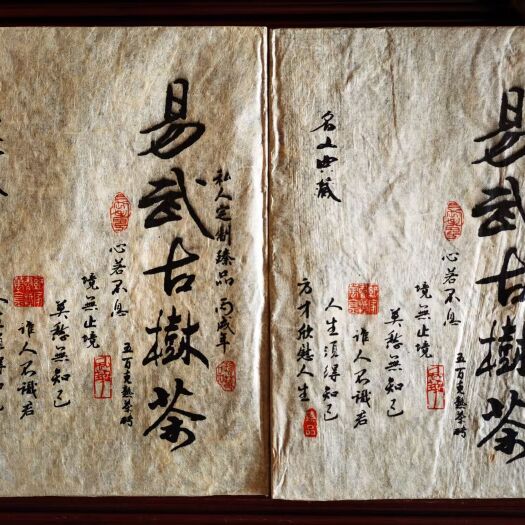 私人定制臻品 丙戌年
易武古樹茶
五百克熟茶砖
心若不息
境無止境
莫愁無知己
誰人不識君
易武古樹茶
五百克熟茶砖
心若不息
境無止境
莫愁無知己
誰人不識君
人生須得知己
方才欣慰人生
典藏